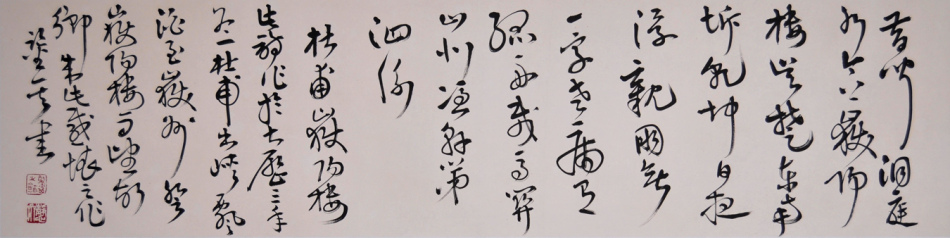 昔聞洞庭
水今上嶽陽
樓吳楚東南
坼乾坤日夜
浮親朋無
一字老病有
孤舟戎馬關
山北憑軒涕
泗流
杜甫嶽陽樓
此詩作於大歷三年
冬杜甫出峽飄
泊至嶽州登
嶽陽樓而望故
鄉此感懷之作
書